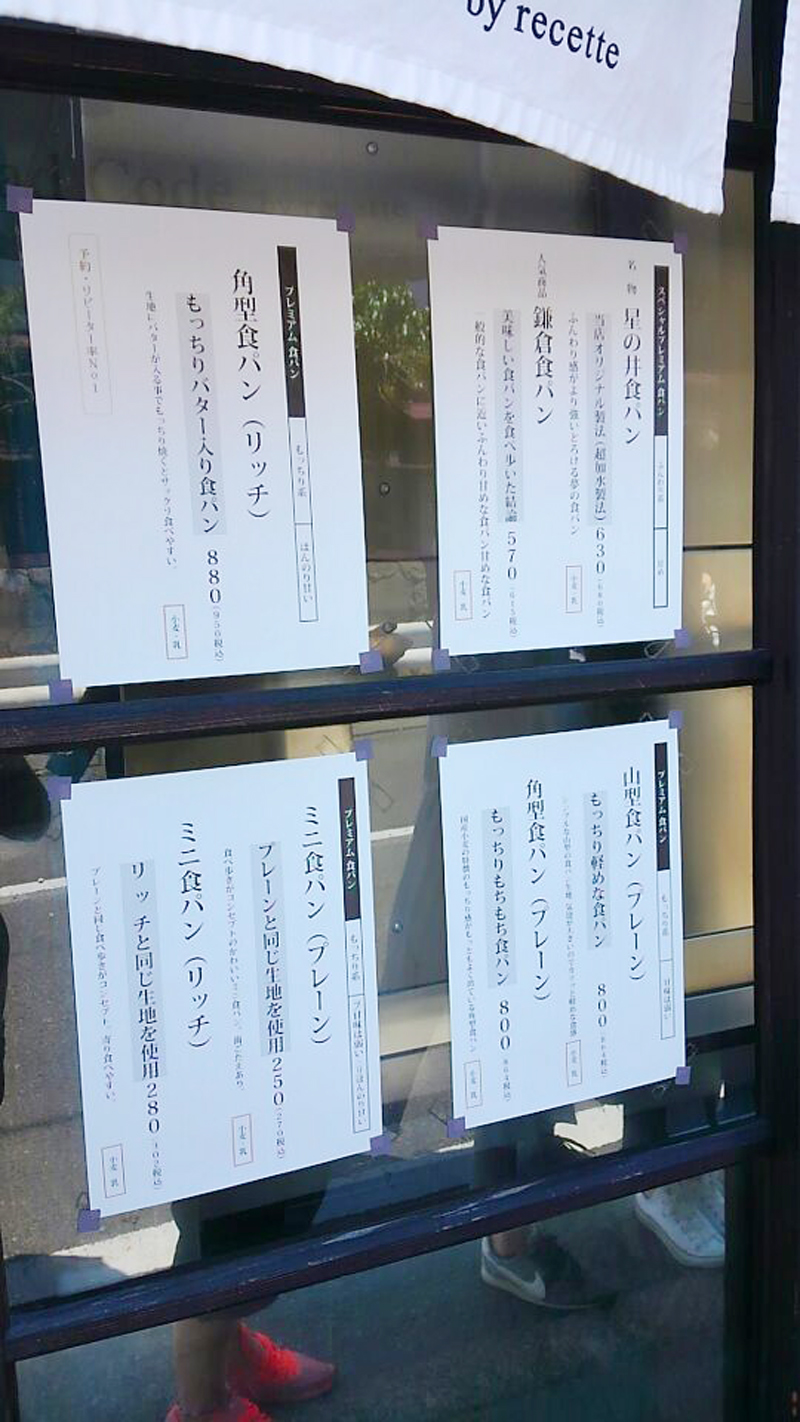 by recette
スペシャルプレミアム食パン
ふんわり系
甘め
名物 星の井食パン
当店オリジナル製法(超加水製法) 630(680税込)
ふんわり感がより強いとろける夢の食パン
小麦・乳
人気商品 鎌倉食パン
美味しい食パンを食べ歩いた結論 570(615税込)
一般的な食パンに近いふんわり甘めな食パン甘めな食パン
小麦・乳
プレミアム食パン
もっちり系
ほんのり甘い
角型食パン(リッチ)
もっちりバター入り食パン 880(950税込)
生地にバターが入る事でもっちり焼くとサックリ食べやすい。
小麦・乳
予約・リピーター率No1
プレミアム食パン
もっちり系
甘味は弱い
山型食パン(プレーン)
もっちり軽めな食パン 800(864税込)
小麦・乳
角型食パン(プレーン)
もっちりもちもち食パン 800(864税込)
国産小麦の特徴のもっちり感がもっともよく出ている角型食パン
小麦・乳
プレミアム食パン
もっちり系
ミニ食パン(プレーン)
プレーンと同じ生地を使用 250(270税込)
食べ歩きがコンセプトのかわいいミニ食パン。歯ごたえあり。
小麦・乳
ミニ食パン(リッチ)
リッチと同じ生地を使用 280(302税込)
プレーンと同じ食べ歩きがコンセプト
小麦・乳